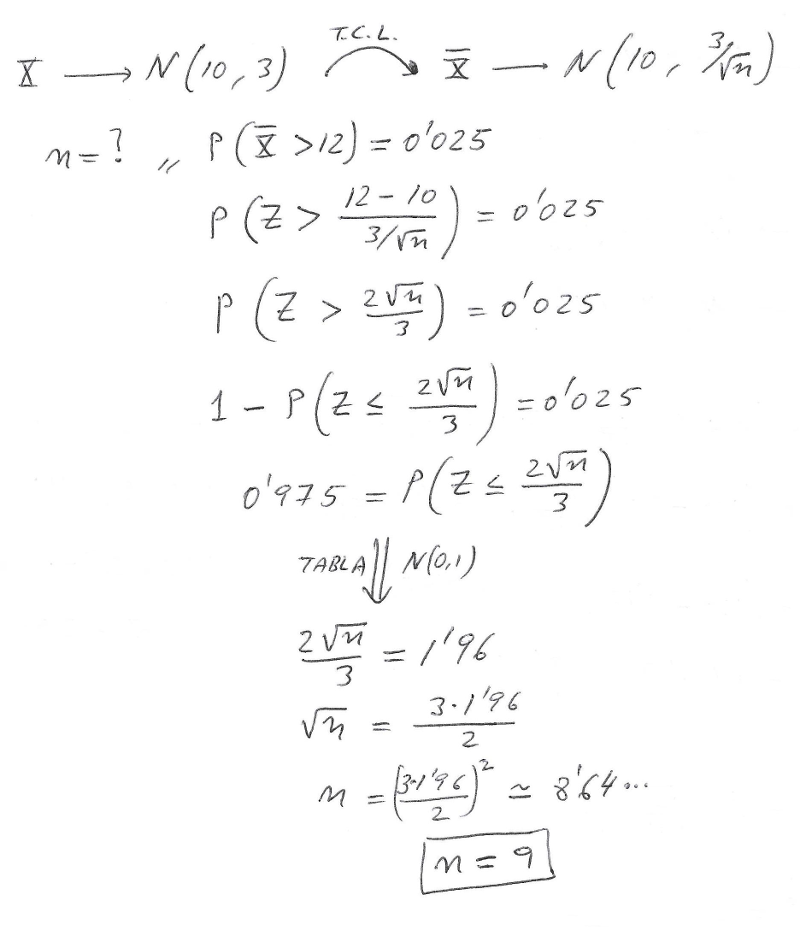 T.C.L.
X → N(10, 3) ↷ X̄ — N(10, 3/√n)
n = ? ,, P(X̄ > 12) = 0'025
P(Z > (12 - 10)/(3/√n)) = 0'025
P(Z > 2√n/3) = 0'025
1 - P(Z ≤ 2√n/3) = 0'025
0'975 = P(Z ≤ 2√n/3)
TABLA ⇓ N(0,1)
2√n/3 = 1'96
√n = 3·1'96/2
n = (3·1'96/2)² ≃ 8'64...
n = 9